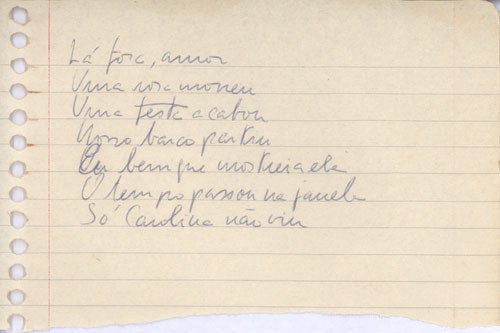 Lá fora, amor
Uma rosa morreu
Uma festa acabou
Nosso barco partiu
Eu bem que mostrei a ela
O tempo passou na janela
Só Carolina não viu